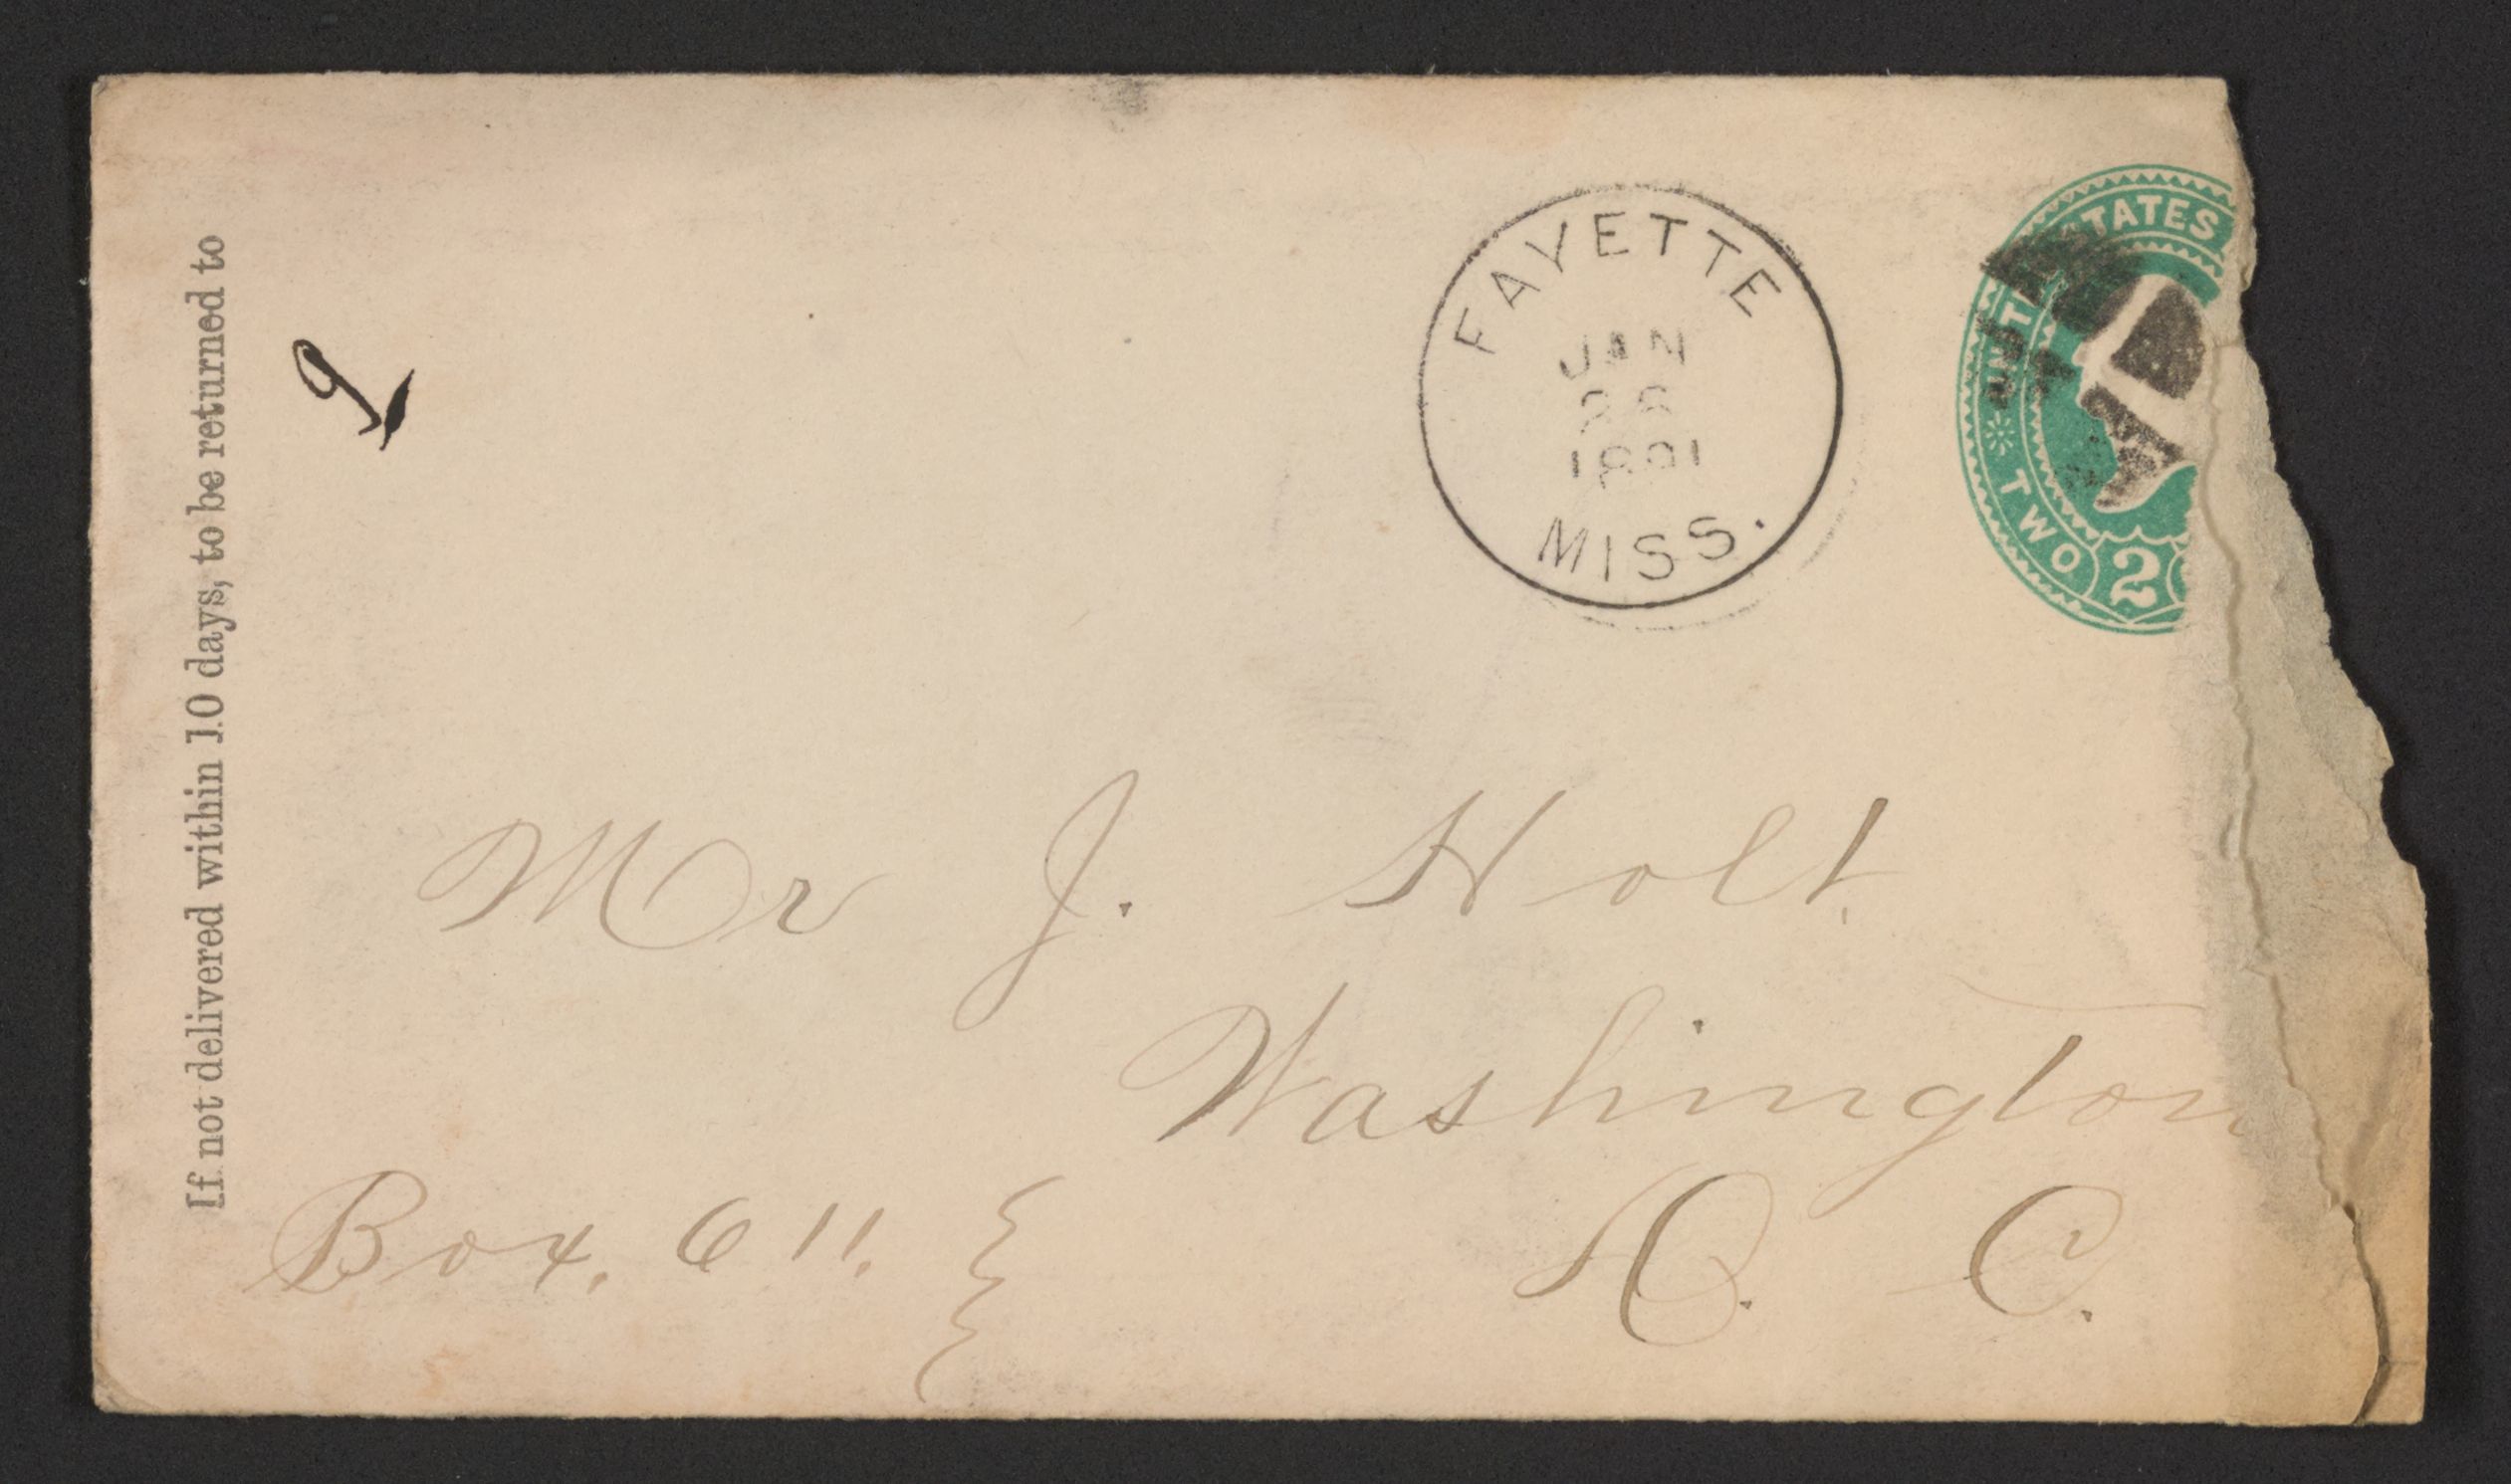 If not delivered within 10 days, to be returned to
FAYETTE
JAN
26
1891
MISS.
UNITED STATES
TWO 2
Mr J. Holt.
Washington
D. C.
Box. 611.